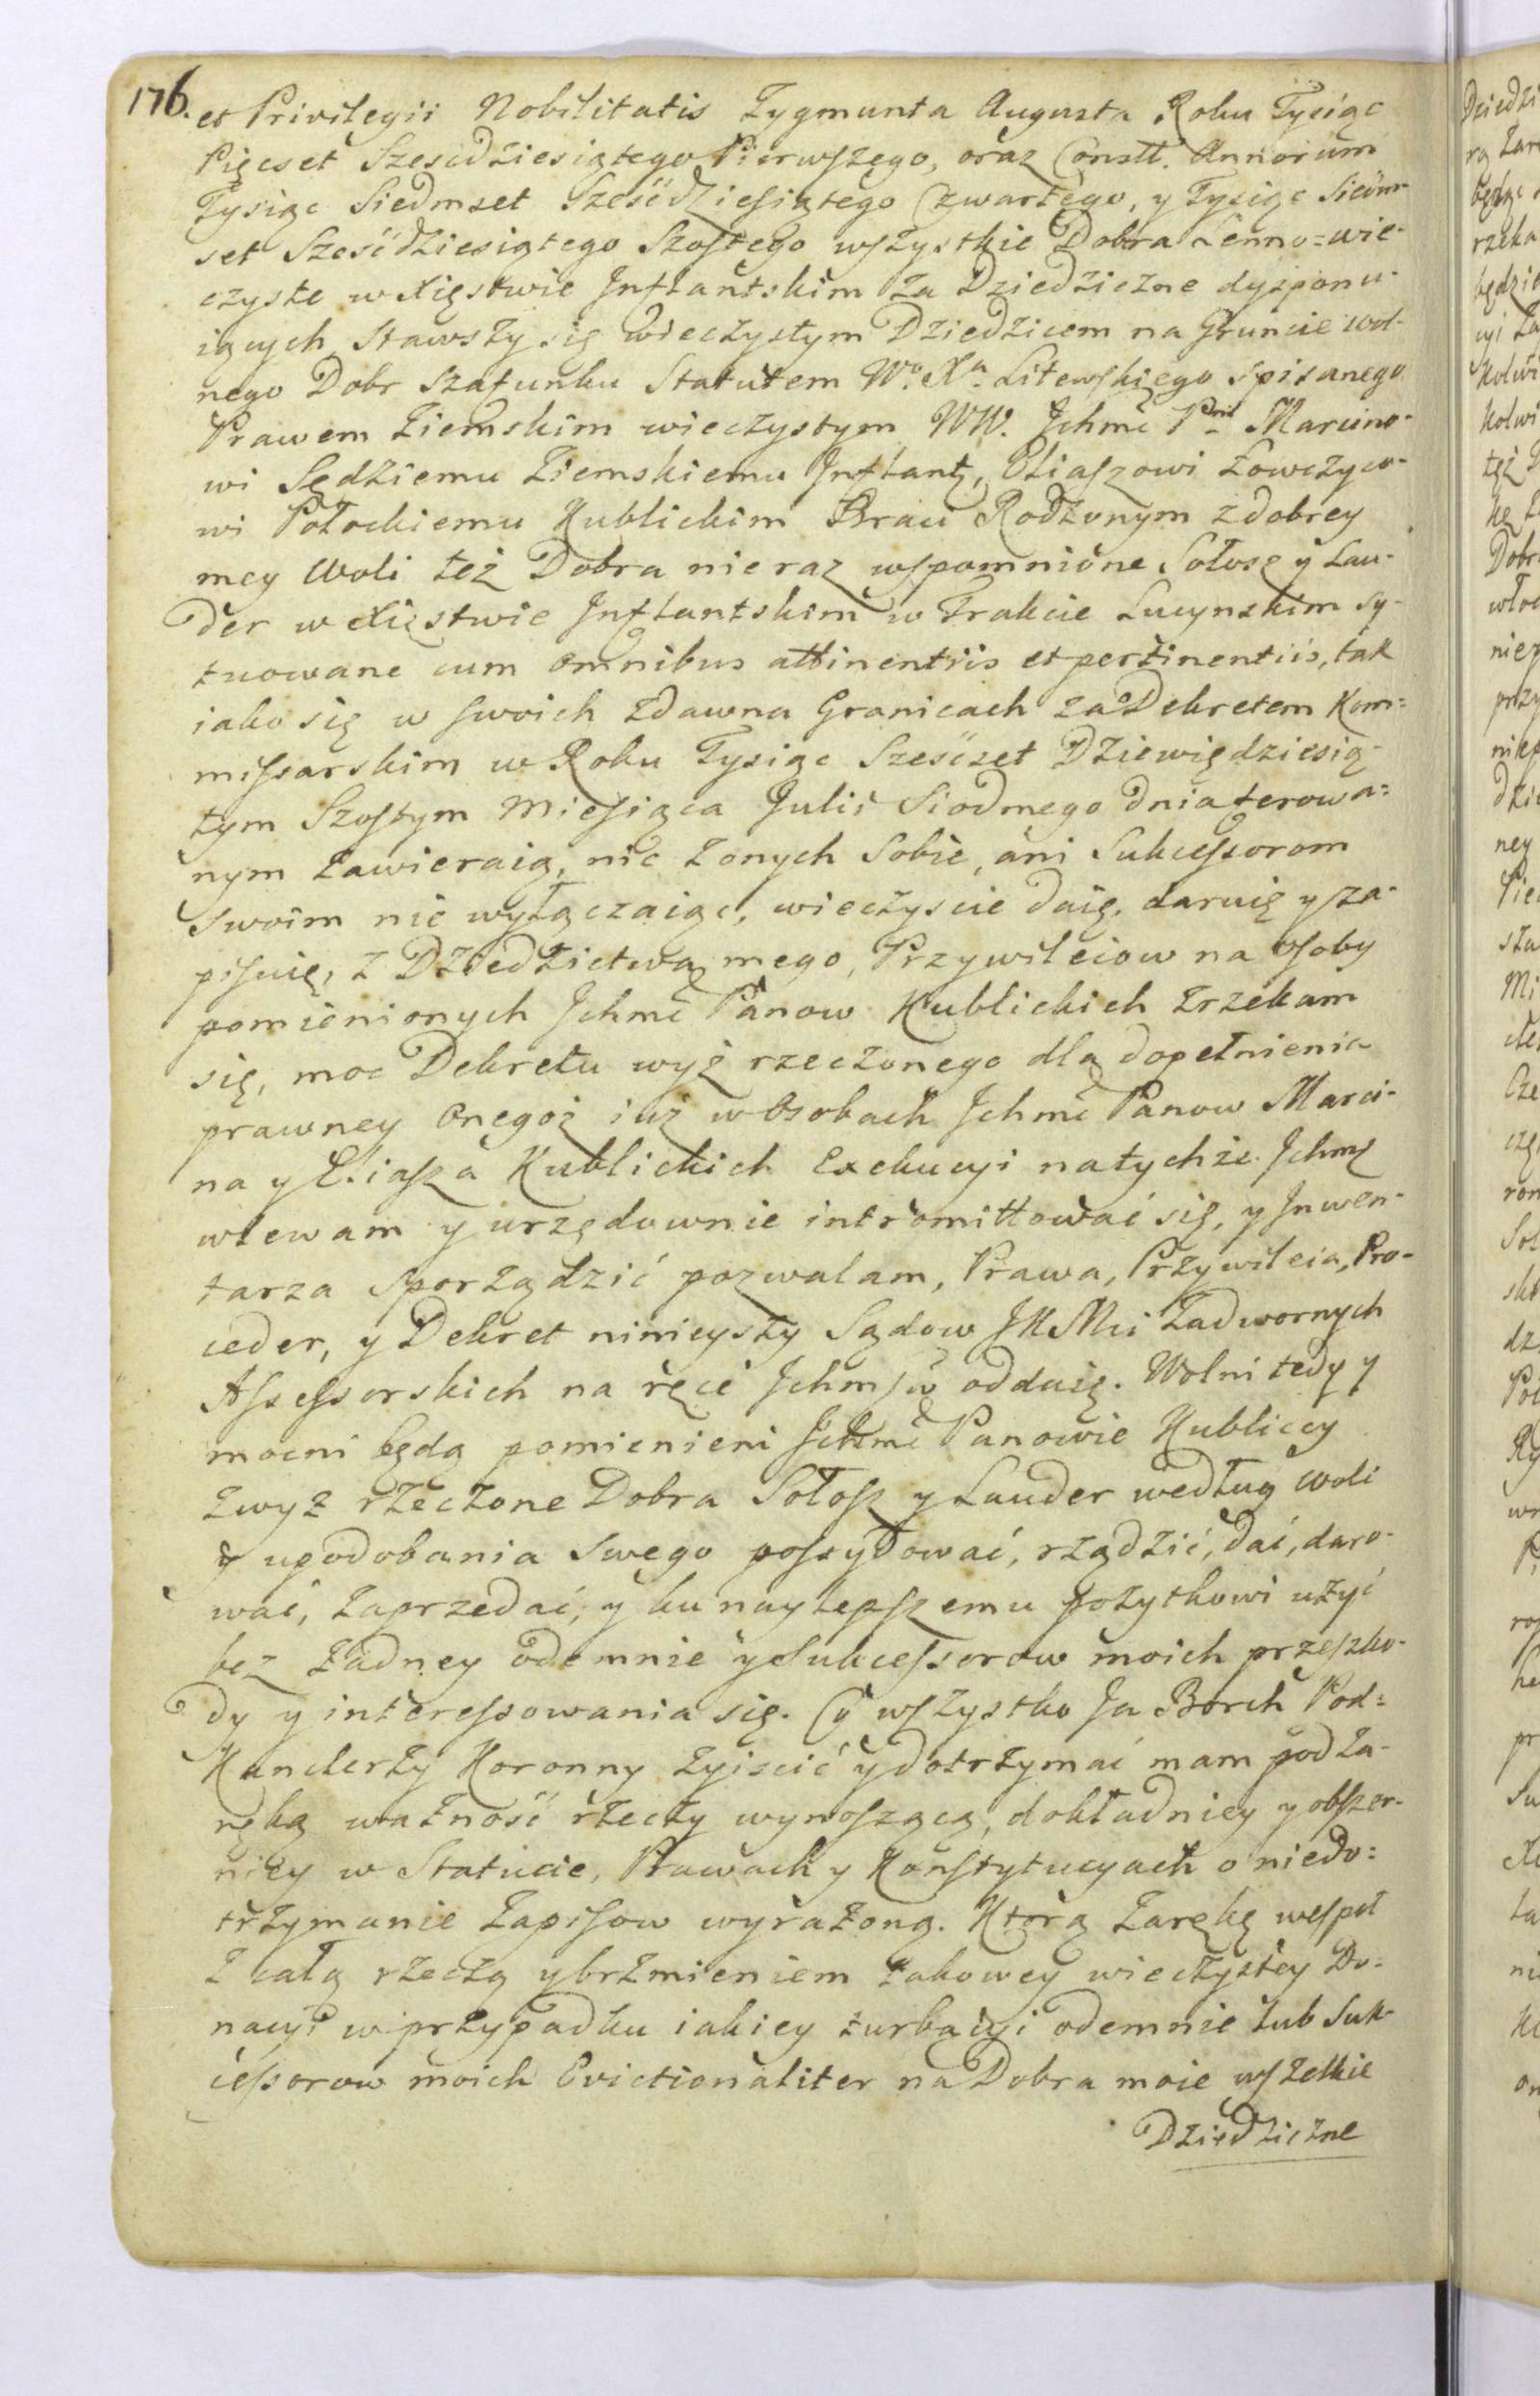 176. et Privilegii Nobilitatis Zygmunta Augusta Roku Tysiąc
Pięcset Szescdziesiątego Pierwszego, oraz Constt. Annorum
Tysiąc Siedmset Sześćdziesiątego Czwartego, y Tysiąc Siedm-
set Sześćdziesiątego Szostego wszystkie Dobra Lenno=wie-
czyste w Xięstwie Inflantskim za Dziedziczne dysponu-
iących stawszy się wieczystym Dziedzicem na Gruncie wol-
nego Dobr szafunku Statutem Wo. Xa. Litewskiego spisanego
Prawem Ziemskim wieczystym WW. Ichmć Pnt Marcino-
wi Sędziemu Ziemskiemu Inflant, Eliaszowi Łowczyco-
wi Połockiemu Kublickim Braci Rodzonym z dobrey
mey woli też Dobra nie raz wspomnione Sołosz y Lau-
der w Xięstwie Inflantskim w Trakcie Lucynskim sy-
tuowane cum omnibus attinentiis et pertinentiis, tak
iako się w swoich zdawna Granicach za Dekretem Kom=
missarskim w Roku Tysiąc Sześćset Dziewiędziesią-
tym Szostym Miesiąca Julii Siodmego dnia ferowa=
nym zawieraią, nic z onych sobie, ani Sukcessorom
swoim nie wyłączaiąc, wieczyscie daię, daruię y za-
pisuię, z Dziedzictwa mego, Przywileiow na osoby
pomienionych Ichmć Panow Kublickich zrzekam
się, moc Dekretu wyż rzeczonego dla dopełnienia
prawney onegoż iuż w Osobach Ichmć Panow Marci-
na y Eliasza Kublickich Exekucyi na tychże Ichmę
wlewam y urzędownie intromittować się, y Inwen-
tarza sporządzić pozwalam, Prawa, Przywileia, Pro-
ceder, y Dekret ninieyszy Sądow JKMci Zadwornych
Assessorskich na ręce Ichmśw oddaię. Wolni tedy y
mocni będą pomienieni Ichmć Panowie Kubliccy
zwyż rzeczone Dobra Sołosz y Lauder według woli
y upodobania swego possydować, rządzić, dać, daro-
wać, zaprzedać, y ku naylepszemu pożytkowi użyć
bez żadney odemnie y Sukcessorow moich przeszko-
dy y interessowania się. Co wszystko Ja Borch Pod=
Kanclerzy Koronny ziścić y dotrzymać mam pod za-
ręką ważność rzeczy wynoszącą, dokładniey y obszer-
niey w Statucie, Prawach y Konstytucyach o niedo=
trzymanie zapisow wyrażoną. Którą zarękę wespoł
z całą rzeczą y brzmieniem takowey wieczystey Do=
nacyi w przypadku iakiey turbacyi odemnie lub Suk-
cessorow moich Evictionaliter na Dobra moie wszelkie
Dziedziczne